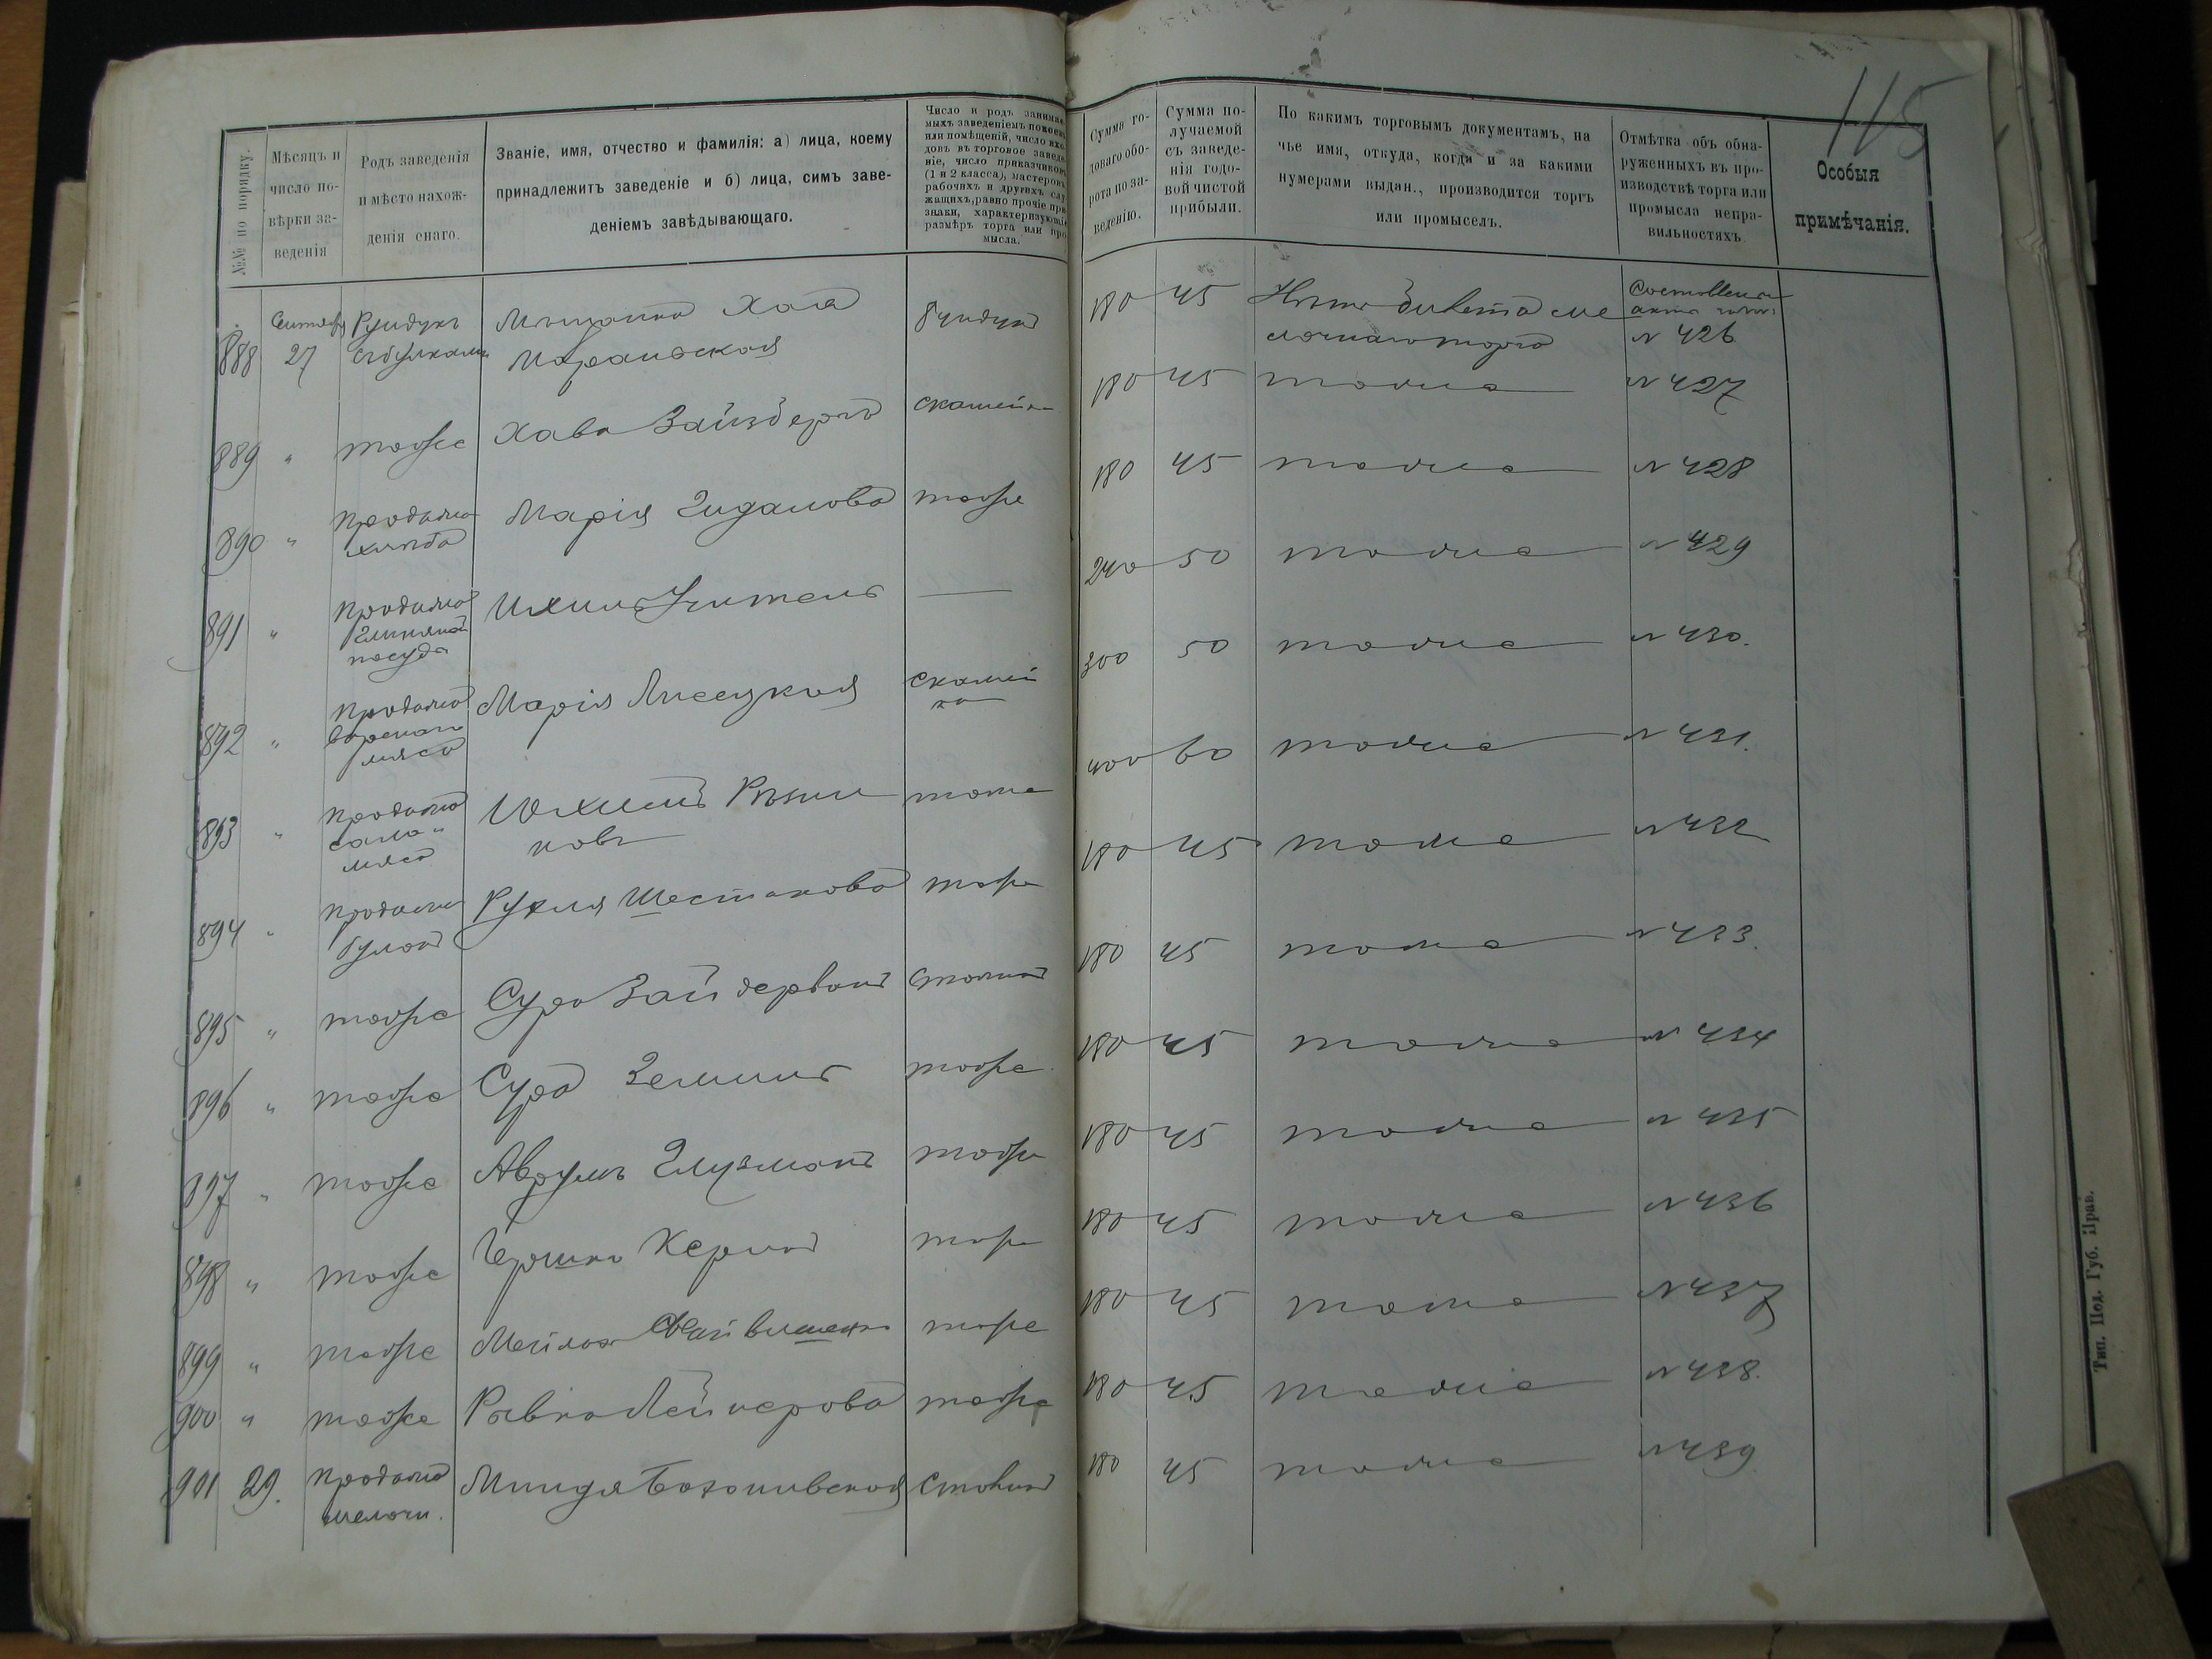 115
№№ по порядку.
Мѣсяцъ и число повѣрки заведенія
Родъ заведенія и мѣсто нахожденія онаго.
Званіе, имя, отчество и фамилія: а) лица, коему
принадлежитъ заведеніе и б) лица, симъ заве-
деніемъ завѣдывающаго.
Число и родъ занимае
мыхъ заведеніемъ покоевъ
или помѣщеній, число вхо
довъ въ торговое заведе
ніе, число приказчиковъ
(1 и 2 класса), мастеровъ
рабочихъ и другихъ слу
жащихъ, равно прочіе при
знаки, характеризующіе
размѣръ торга или про
мысла.
Сумма го-
доваго обо-
рота по за-
веденію.
Сумма по-
лучаемой
съ заведе-
нія годо-
вой чистой
прибыли.
По какимъ торговымъ документамъ, на
чье имя, откуда, когда и за какими
нумерами выдан., производится торгъ
или промыселъ.
Отмѣтка объ обна-
руженныхъ въ про-
изводствѣ торга или
промысла непра-
вильностяхъ.
Особыя
примѣчанія.
888 27 Рундукъ Мѣщанка Хая 180 45 Нѣтъ билета ме
лочнаго торга № 426
889 " тоже Хава Зайзберъ скамейка 180 45 тоже № 427
890 " Продажа хлѣба Марія Гидалова тоже 180 45 тоже № 428
891 " Продажа глиняной посуды Ихиль Учитель — 240 50 тоже № 429
892 " Продажа варенаго мяса Марія Лисецкая скамейка 300 50 тоже № 430.
893 " Продажа сала мяса Рѣзни
ковъ тоже 400 60 тоже № 431.
894 " Продажа булокъ Рухля Шестакова тоже 180 45 тоже № 432
895 " тоже Сура столикъ 180 45 тоже № 433.
896 " тоже Сура тоже 180 45 тоже № 434
897 " тоже Аврумъ Глузманъ тоже 180 45 тоже № 435
898 " тоже тоже 180 45 тоже № 436
899 " тоже тоже 180 45 тоже № 437
900 " тоже Ривка Лейнерова тоже 180 45 тоже № 438.
901 29. Продажа мелочи. Миндя столикъ 180 45 тоже № 439.
Тип. Под. Губ. Прав.